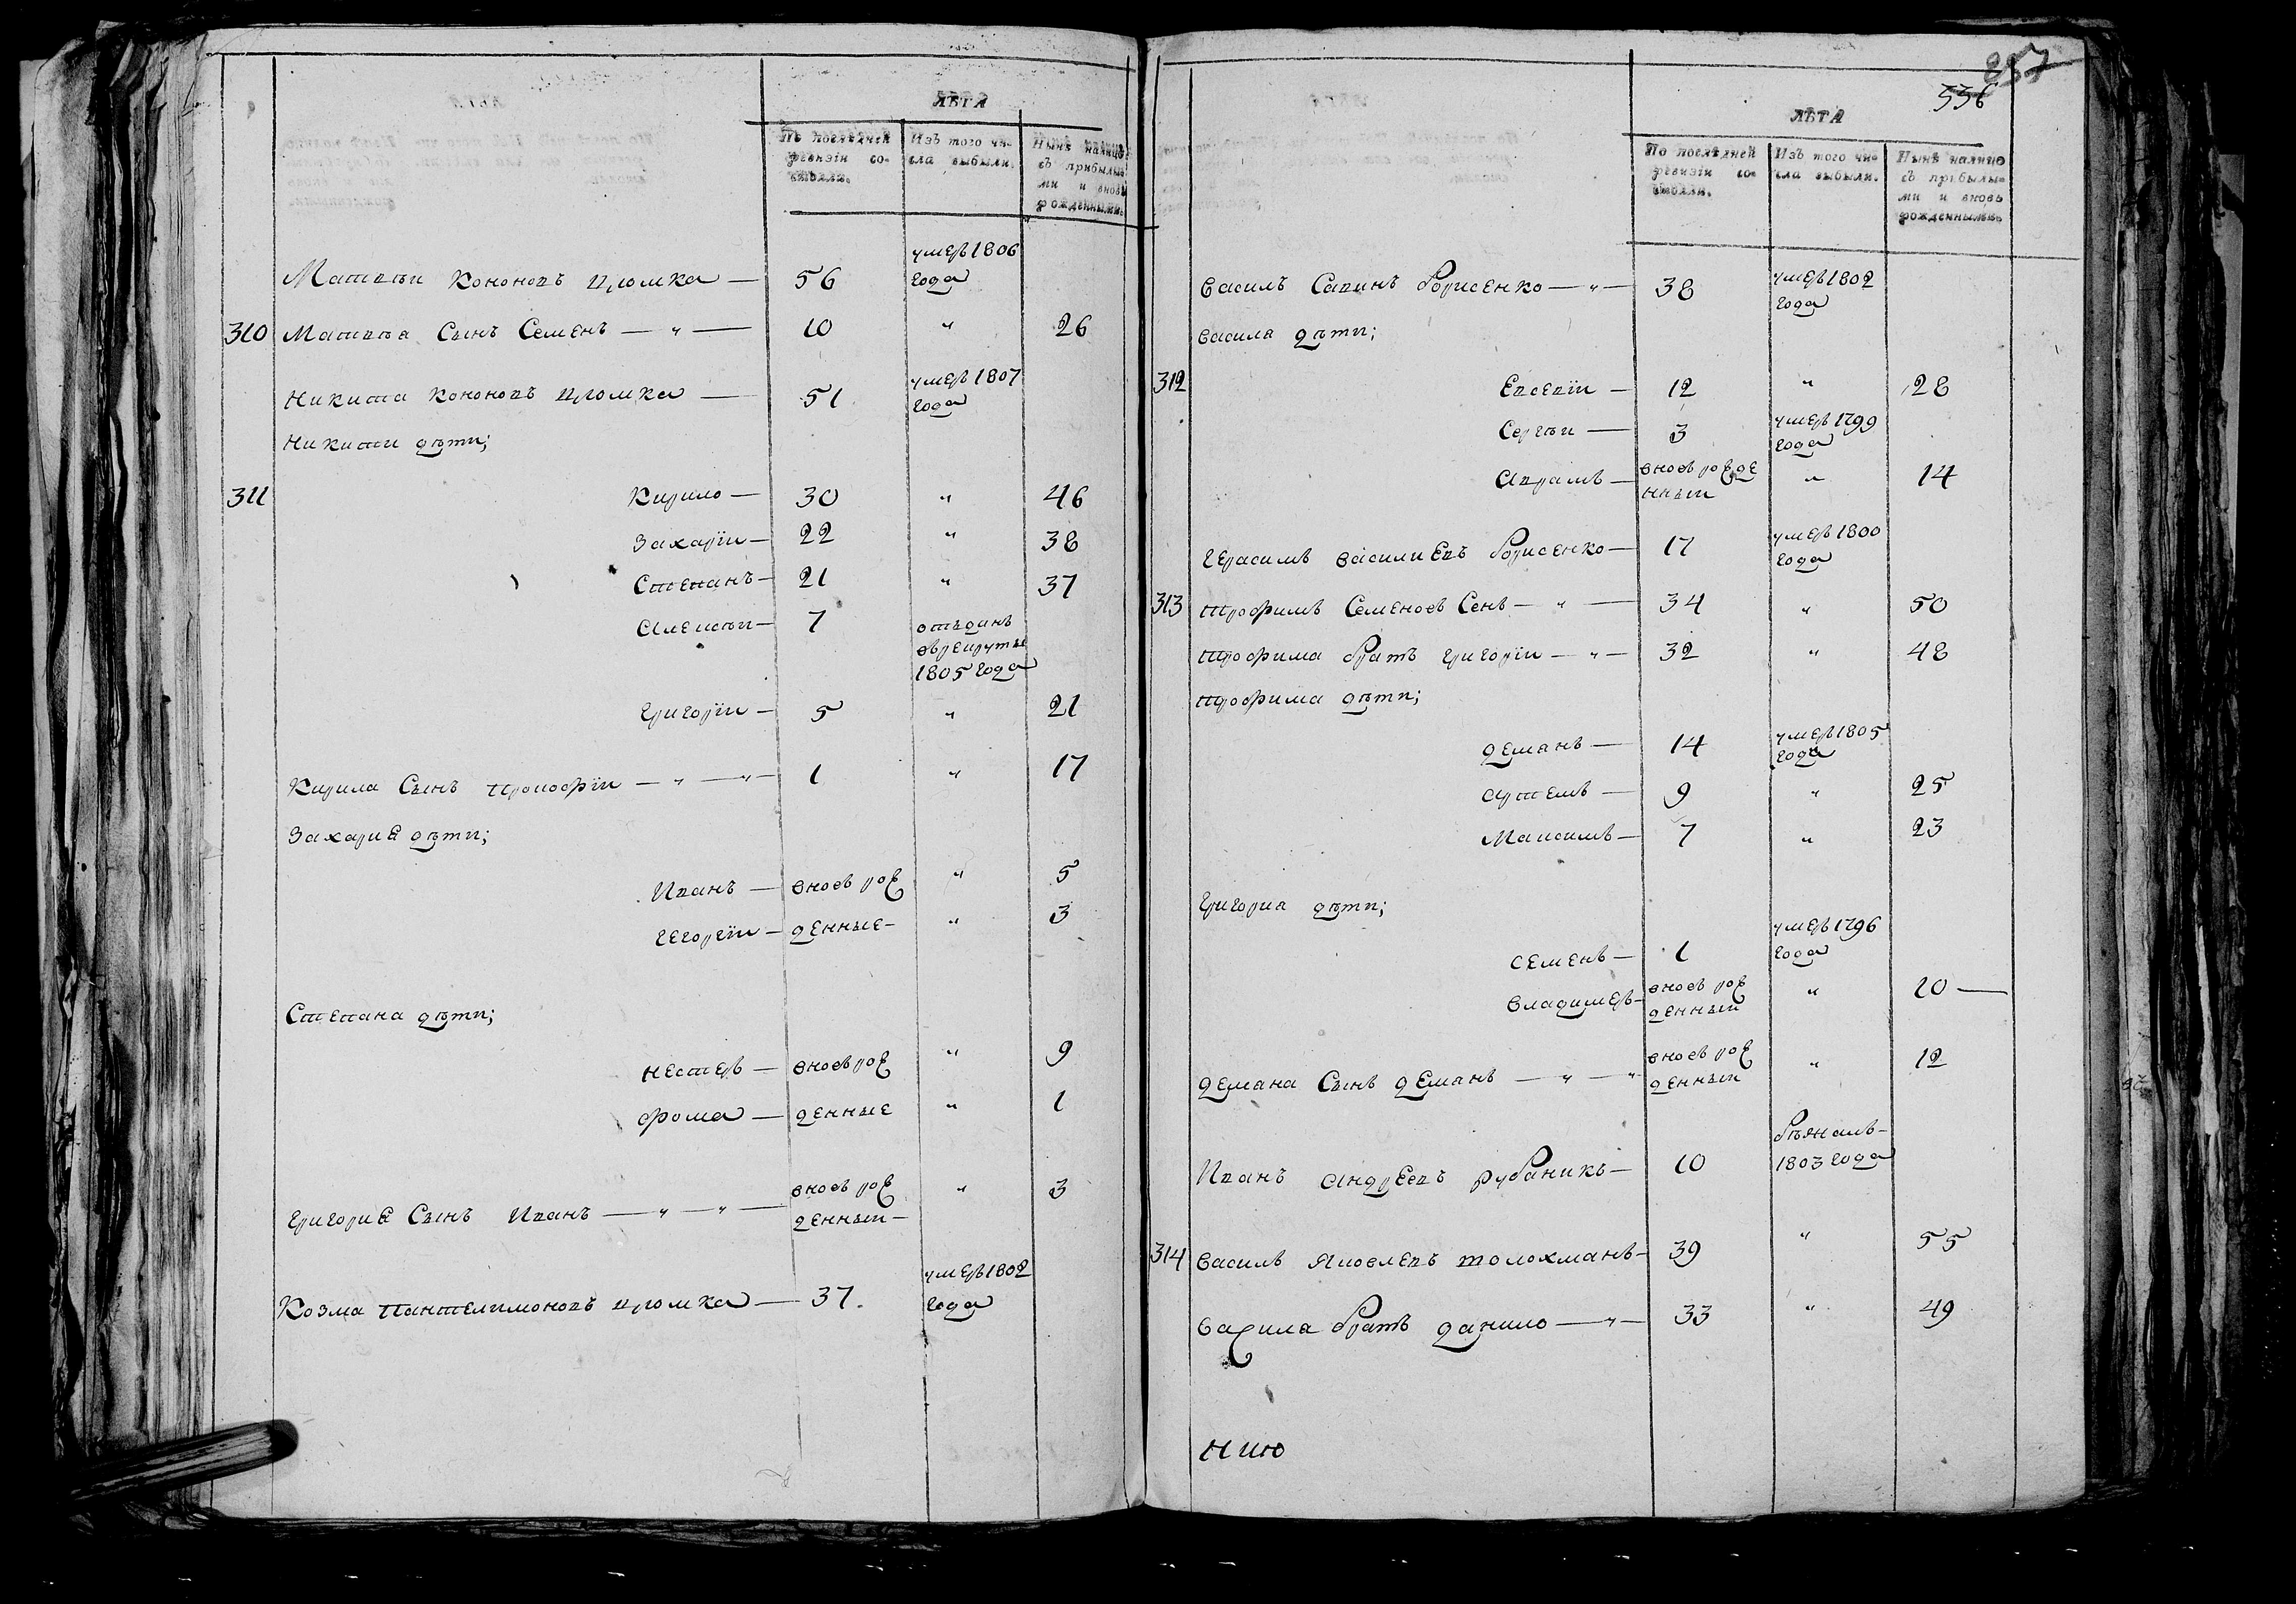 ЛѢТА
По послѣдней ревизіи состояли.
Изъ того числа выбыли.
Нынѣ налицо съ прибылыми и вновь рожденными.
Матвѣй Кононовъ Цюмка — 56 умеръ 1806 года
310 Матвѣя Сынъ Семенъ — " — 10 " 26
Никита Кононовъ Цюмка — 51 умеръ 1807 года
Никиты дѣти;
311 Кирило — 30 " 46
Захарїй — 22 " 38
Степанъ — 21 " 37
Алексѣй — 7 отъданъ въ рекруты 1805 года
Григорїй — 5 " 21
Кирила Сынъ Прокофїй — " — " — 1 " 17
Захарие дѣти;
Иванъ — вновь рож " 5
Георгїй — денные — " 3
Степана дѣти;
Нестеръ — вновь рож " 9
Фома — денные " 1
Григорие Сынъ Иванъ — " — " — вновь рожденный — " 3
Козма Пантелимоновъ Цюмка — 37. умеръ 1802 года
857
536
ЛѢТА
По послѣдней ревизіи состояли.
Изъ того числа выбыли.
Нынѣ налицо съ прибылыми и вновь рожденными.
Василъ Савинъ Борисенко — " — 38 умеръ 1802 года
Васила дѣти;
312 Евсевїй — 12 " 28
Сергѣй — 3 умеръ 1799 года
Аврамъ — вновь рожденный " 14
Герасимъ Василиевъ Борисенко — 17 умеръ 1800 года
313 Трофимъ Семеновъ Сенъ — " — 34 " 50
Трофима братъ Григорїй — " — 32 " 48
Трофима дѣти;
Деманъ — 14 умеръ 1805 года
Артемъ — 9 " 25
Максимъ — 7 " 23
Григориа дѣти;
Семенъ — 1 умеръ 1796 года
Владимеръ — вновь рожденный " 10 —
Демана Сынъ Деманъ — " — " вновь рожденный " 12
Иванъ Андреевъ Рубаникъ — 10 бѣжалъ — 1803 года
314 Василъ Яковлевъ Толохманъ — 39 " 55
Васила братъ Данило — " — 33 " 49